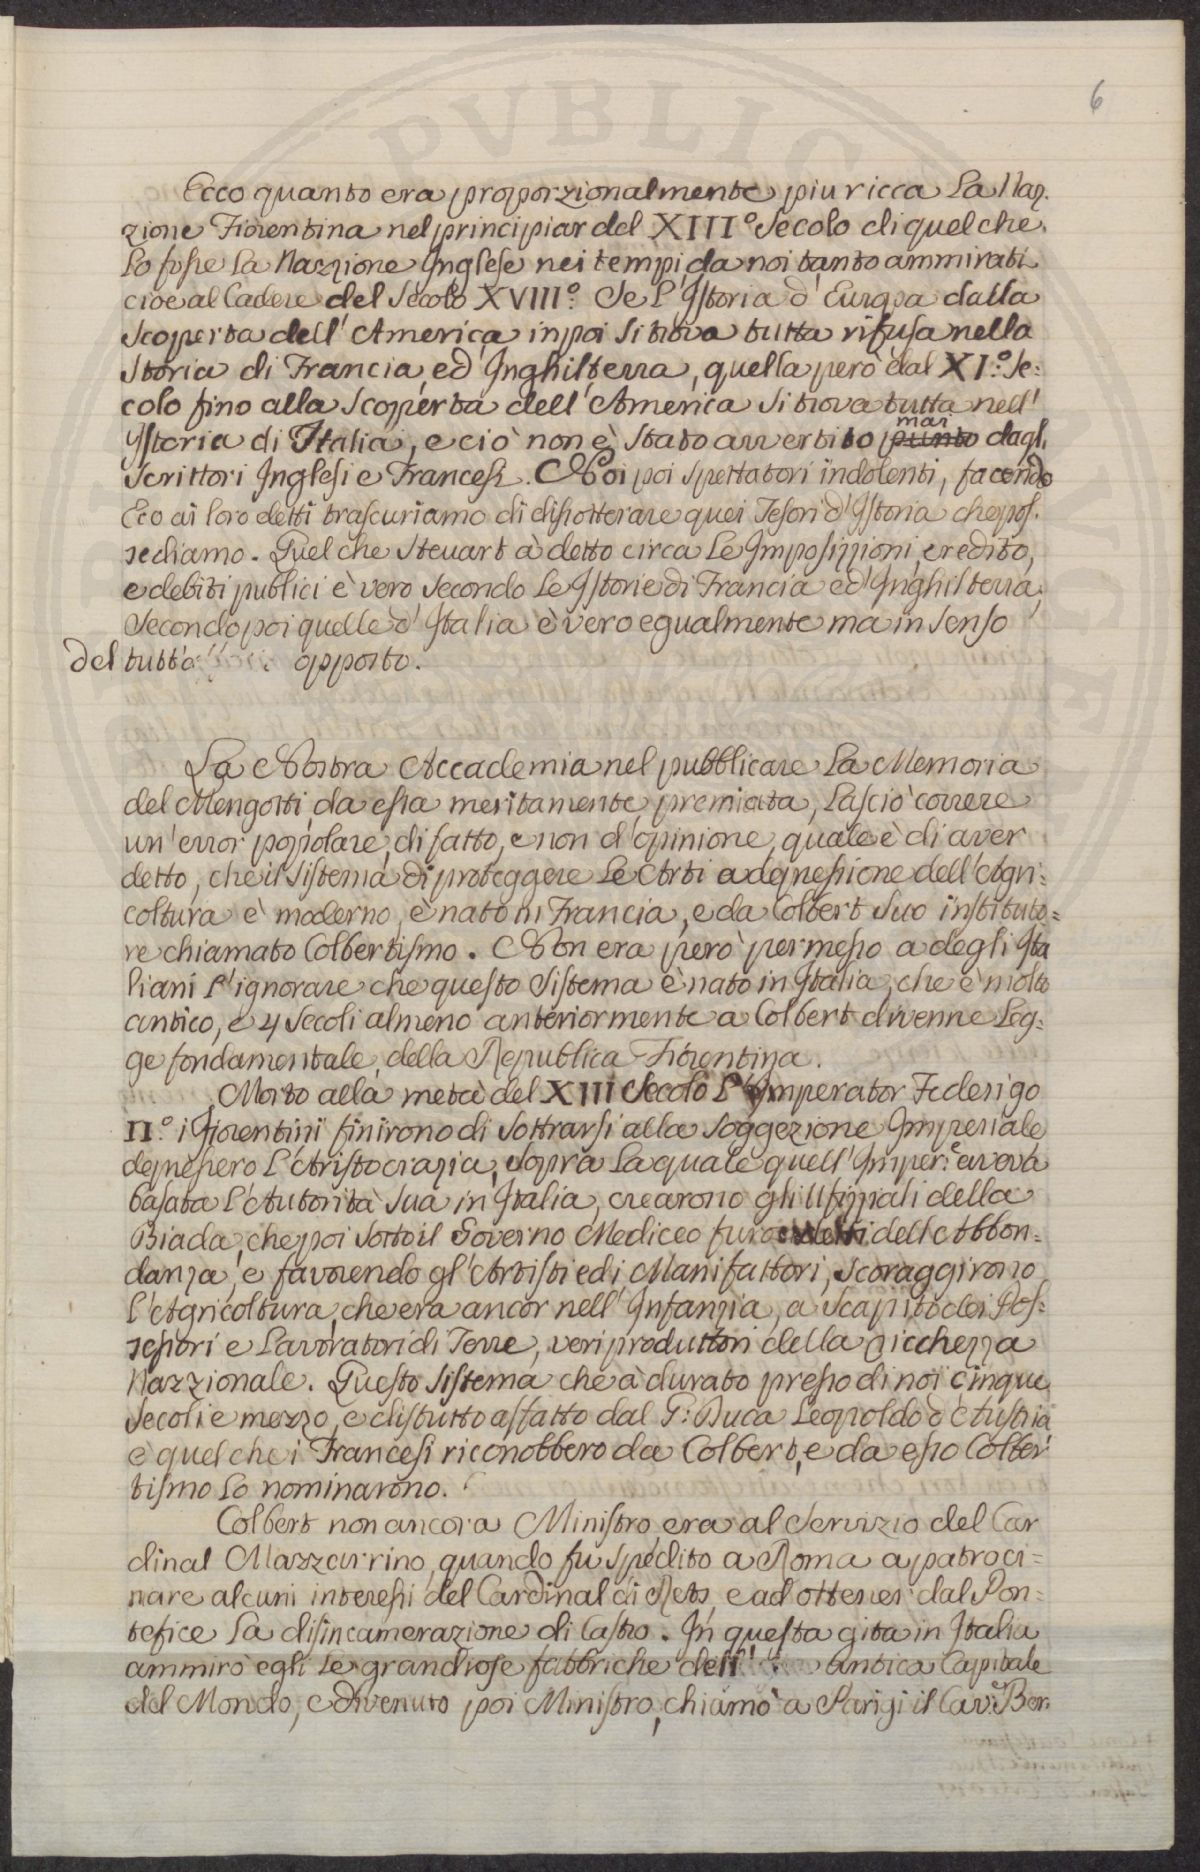 6
Ecco quanto era proporzionalmente piu ricca La Naz.
zione Fiorentina nel principiar del XIII.° Secolo di quel che
Lo fosse La Nazzione Inglese nei tempi da noi tanto ammirati
cioe al Cadere del Secolo XVIII.° Se L'Istoria d'Europa dalla
Scoperta dell'America inpoi si trova tutta rifusa nella
Storia di Francia, ed Inghilterra, quella però dal XI.° Se:
colo fino alla Scoperta dell'America si trova tutta nell'
Ystoria di Italia, e ciò non è stato avvertito punto mai dagl.
Scrittori Inglesi e Francesi. Noi poi spettatori indolenti, facendo
Eco ai loro detti trascuriamo di dissotterrare quei Tesori d'Istoria che pos.
sediamo. Quel che Steuart à detto circa Le Imposizzioni, credito,
e debiti publici è vero secondo Le Istorie di Francia ed Inghilterra,
Secondo poi quelle d'Italia è vero egualmente ma in senso
del tutto opposto.
La Nostra Accademia nel pubblicare La Memoria
del Mengotti, da essa meritamente premiata, Lasciò correre
un'error popolare, di fatto, e non d'opinione, quale è di aver
detto, che il Sistema di proteggere Le Arti a depressione dell'Agri:
coltura è moderno, è nato in Francia, e da Colbert suo instituto=
re chiamato Colbertismo. Non era però permesso a degli Ita
liani L'ignorare che questo Sistema è nato in Italia, che è molto
antico, e 4 Secoli almeno anteriormente a Colbert divenne Leg:
ge fondamentale della Republica Fiorentina.
Morto alla metà del XIII Secolo L'Imperator Federigo
II.° i Fiorentini finirono di sottrarsi alla Soggezione Imperiale
depressero L'Aristocrazia, sopra La quale quell'Imper.e aveva
basata L'Autorità sua in Italia, crearono gli Ufizziali della
Biada, che poi sotto il Governo Mediceo furo detti dell'Abbon=
danza, e favorendo gl'Artisti ed i Manifattori, scoraggirono
L'Agricoltura, che era ancor nell'Infanzia, a Scapito dei Pos=
sessori e Lavoratori di Terre, veri produttori della Ricchezza
Nazzionale. Questo Sistema che à durato presso di noi cinque
Secoli e mezzo, e distrutto affatto dal G: Duca Leopoldo d'Austria
è quel che i Francesi riconobbero da Colbert, e da esso Colber
tismo Lo nominarono.
Colbert non ancora Ministro, era al Servizio del Car
dinal Mazzarrino, quando fu spedito a Roma a patroci=
nare alcuni interessi del Cardinal di Rets, e ad ottener dal Pon=
tefice La disincamerazione di Castro. In questa gita in Italia
ammirò egli Le grandiose fabbriche dell' antica Capitale
del Mondo, e divenuto poi Ministro, chiamò a Parigi il Cav.e Ber.